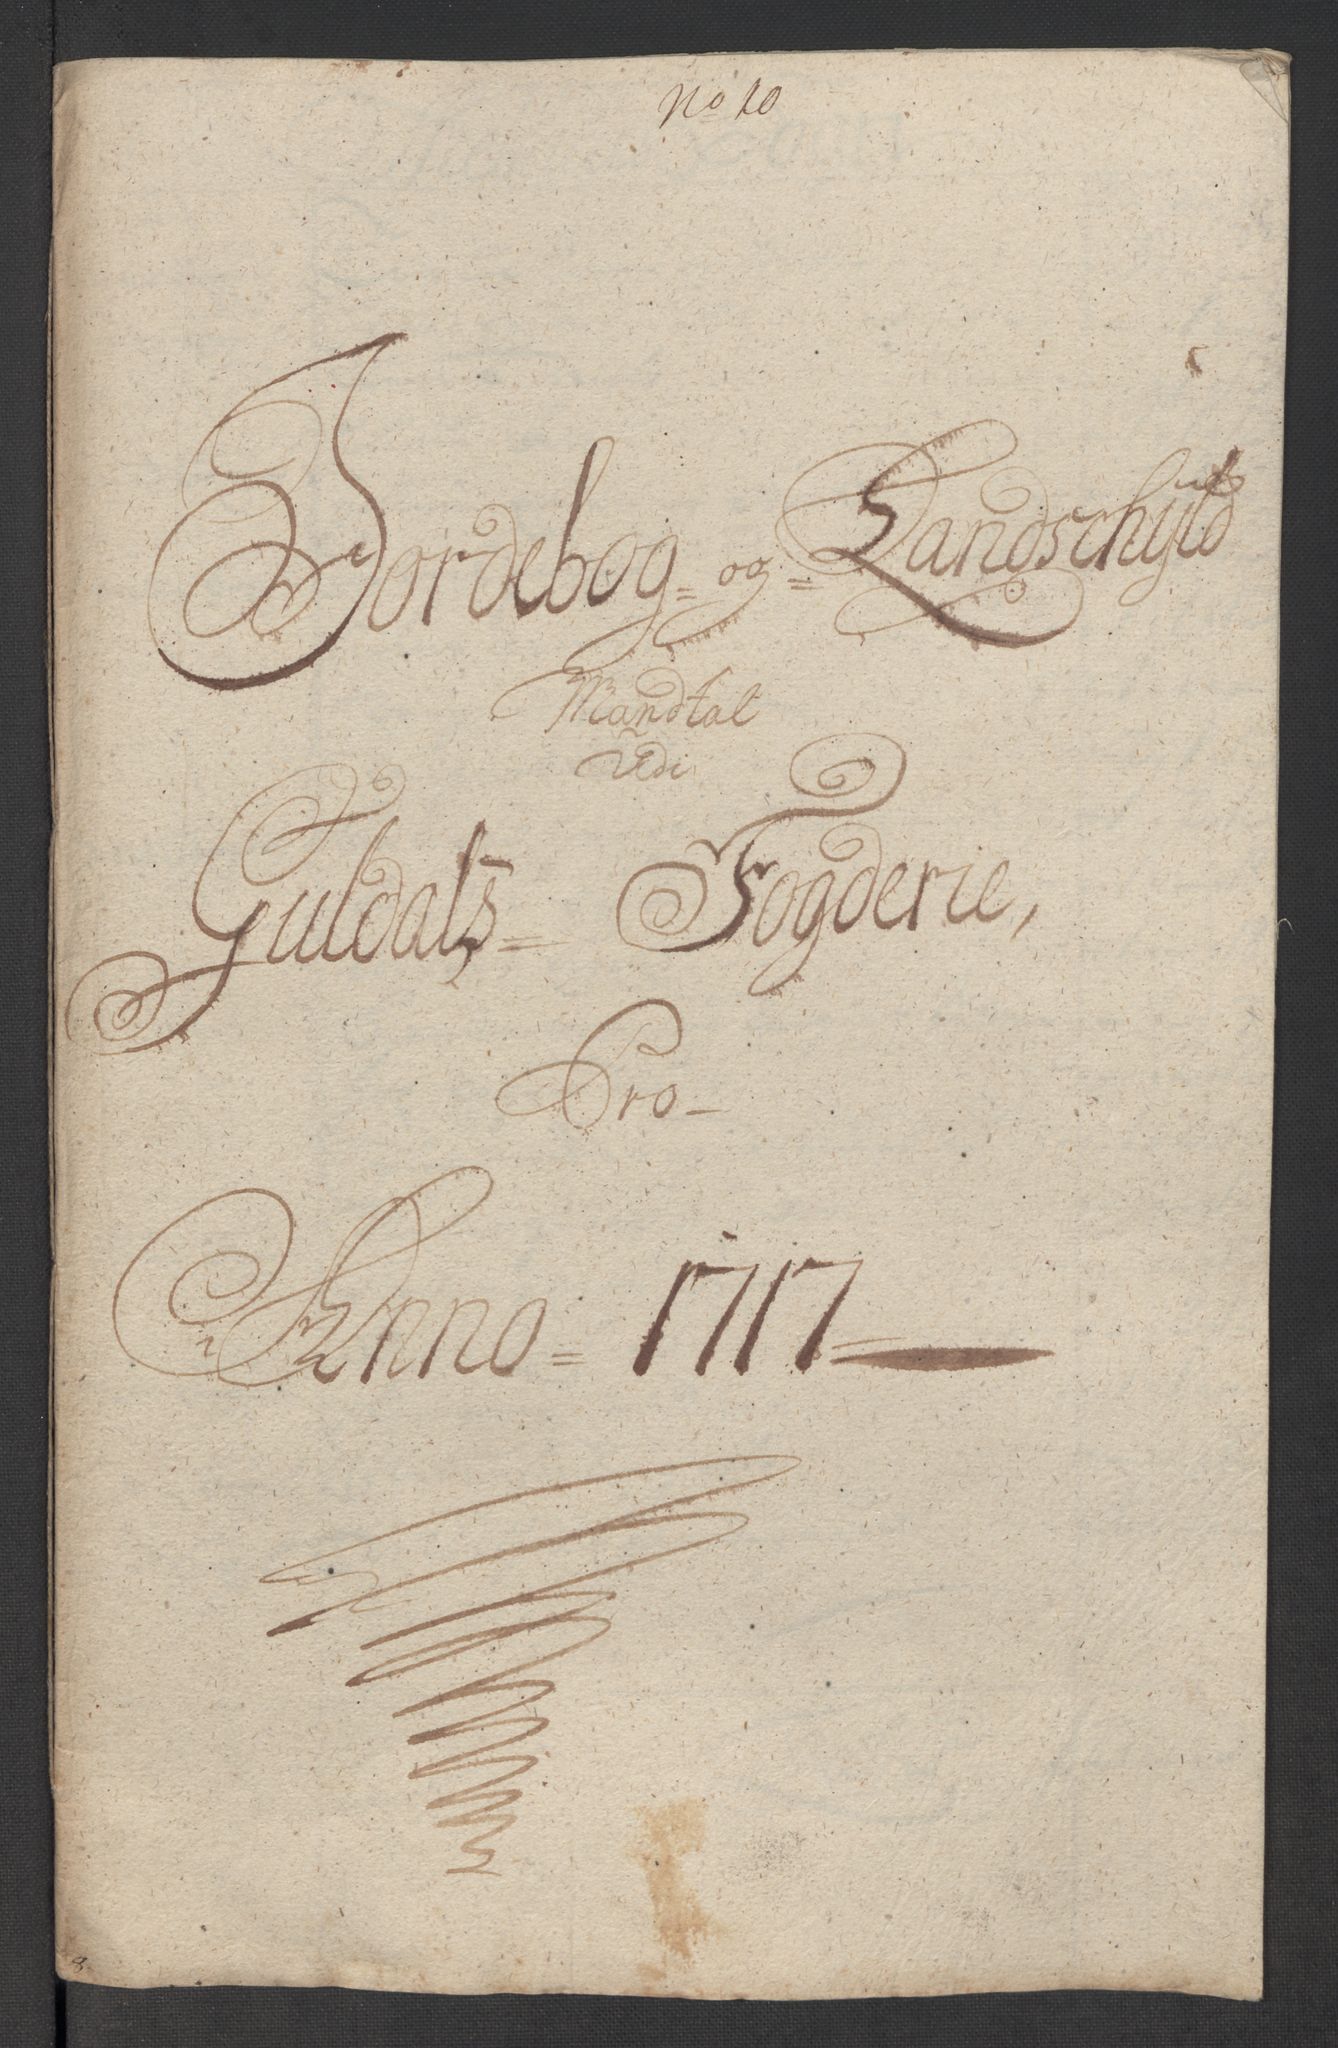 No 10
Jordebog = og = Landschyld
Mandtal
Udi
Guldals = Fogderie,
Pro -
Anno = 1717
8